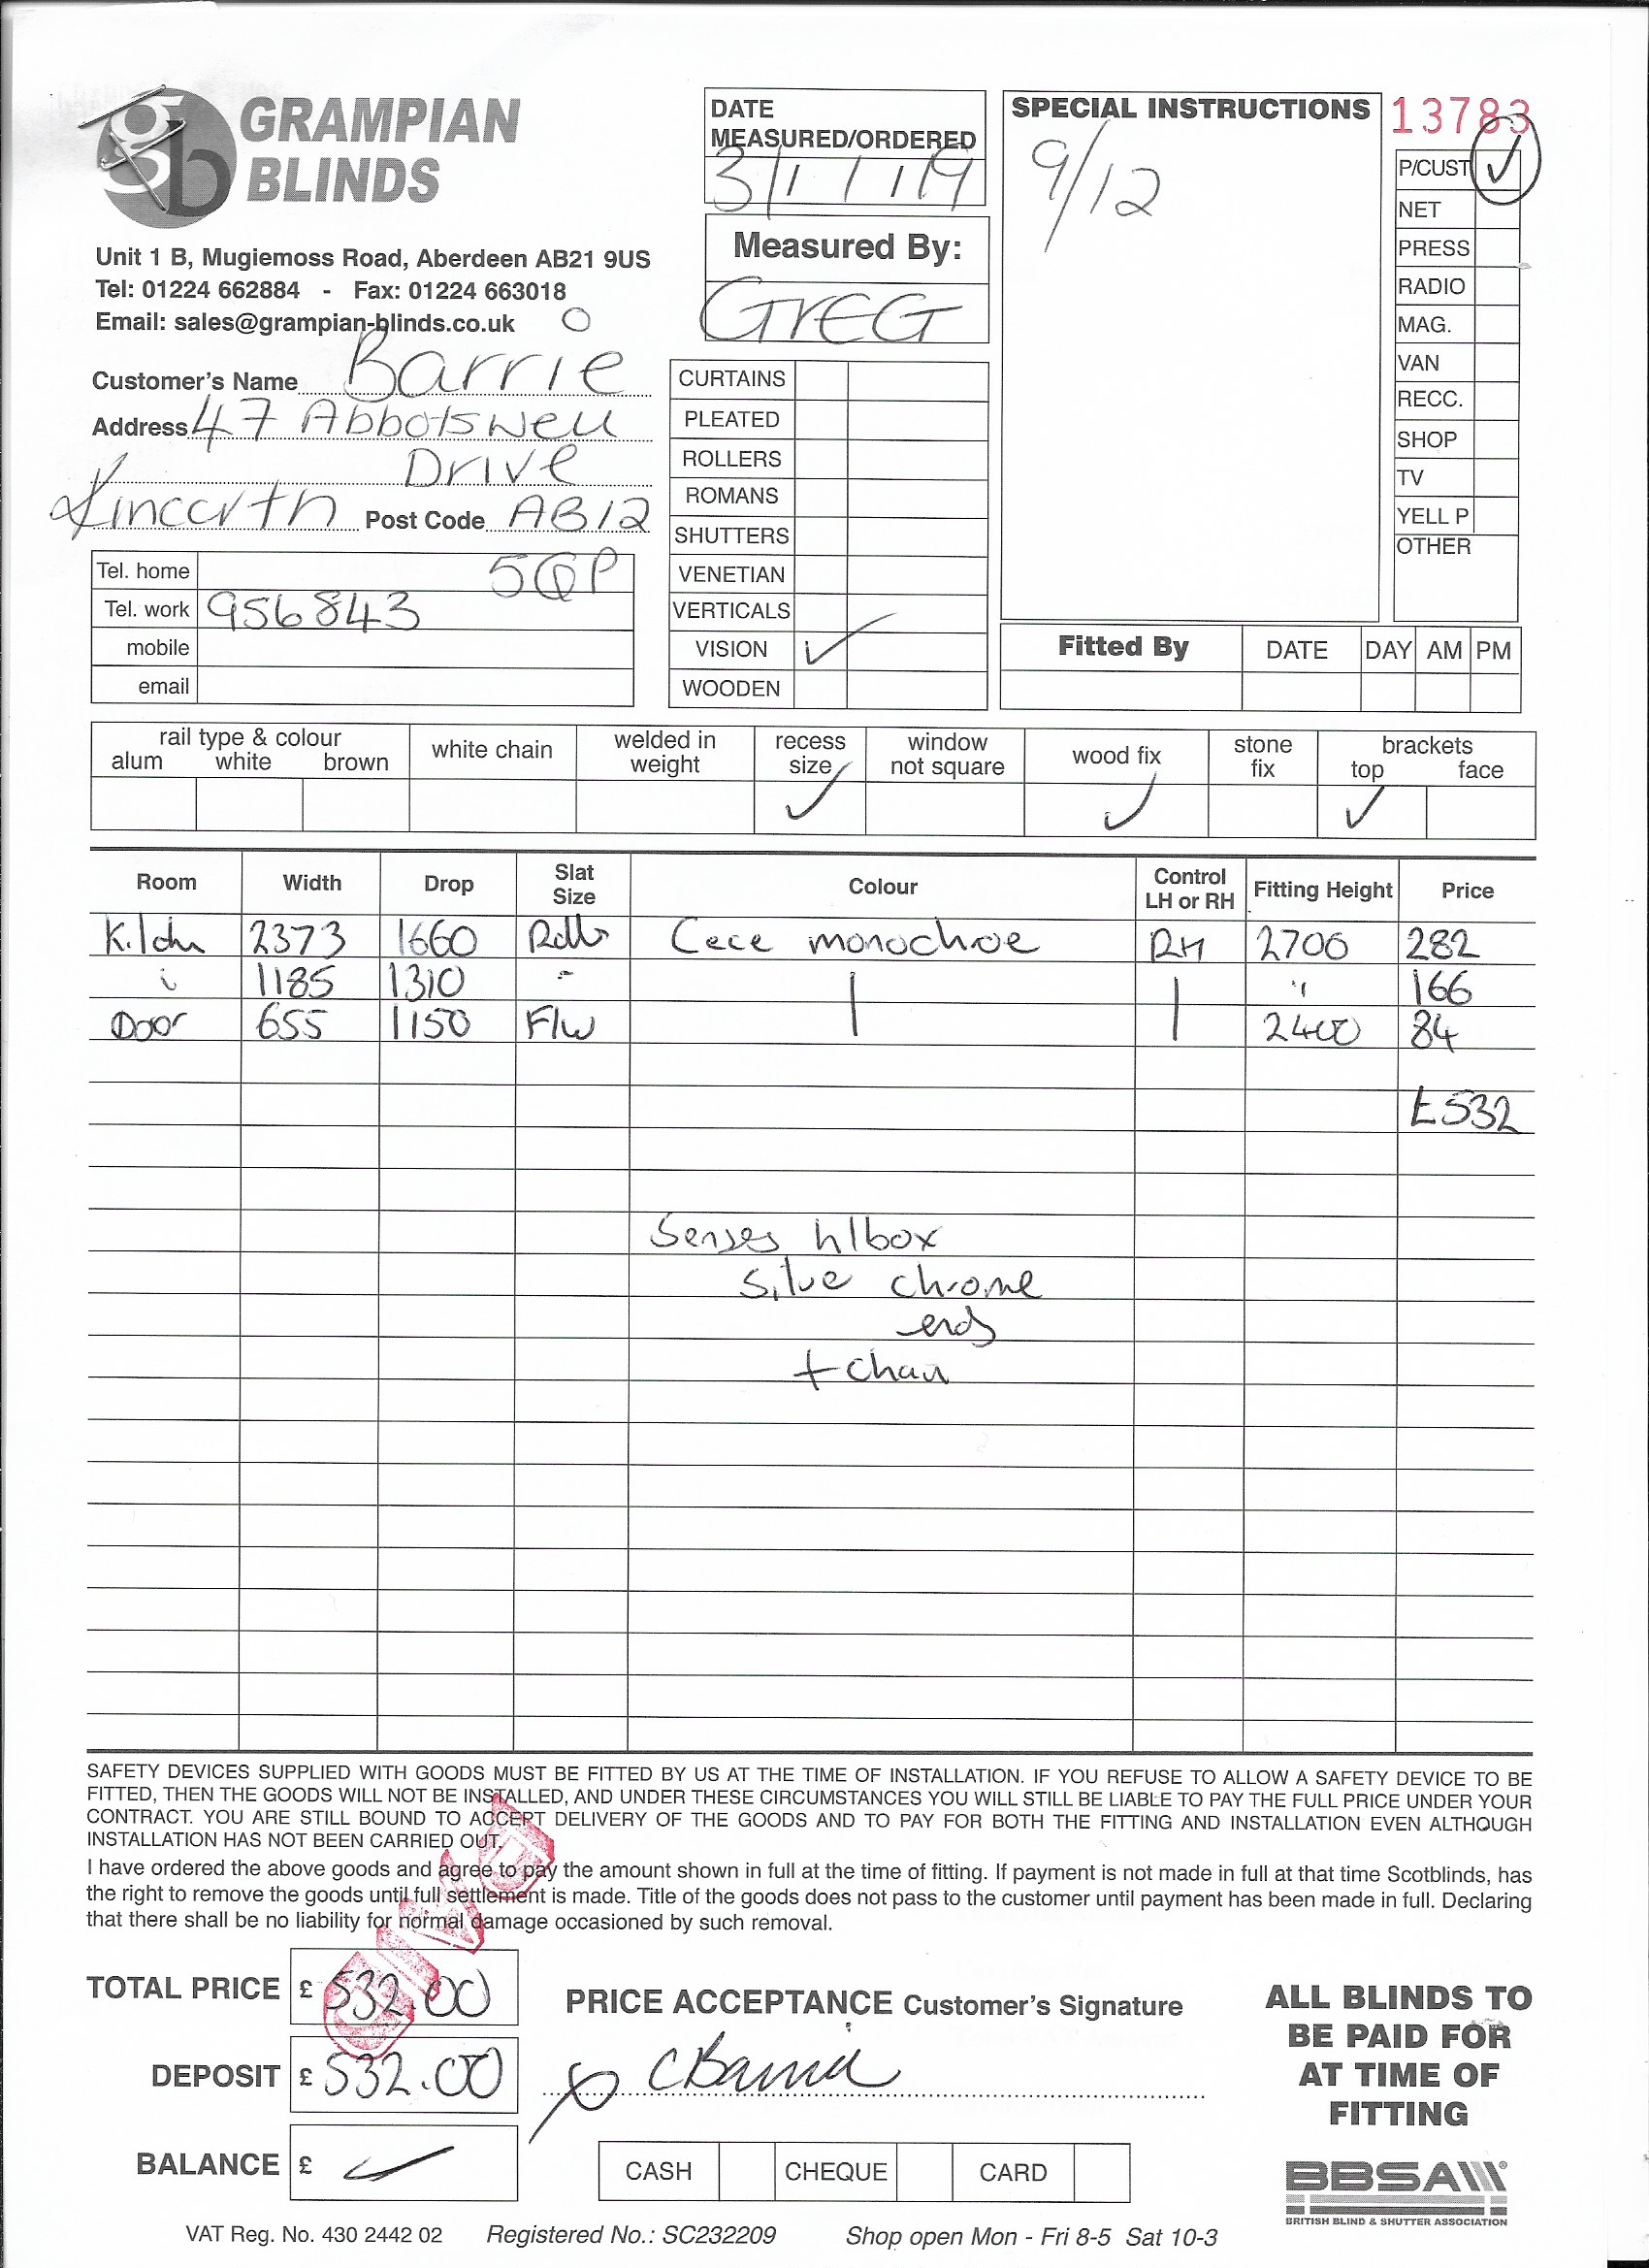 gb GRAMPIAN
BLINDS
Unit 1 B, Mugiemoss Road, Aberdeen AB21 9US
Tel: 01224 662884 - Fax: 01224 663018
Email: sales@grampian-blinds.co.uk
Customer's Name Barrie
Address 47 Abbotswell
Drive
Kincorth Post Code AB12
5QP
Tel. home
Tel. work 956843
mobile
email
DATE
MEASURED/ORDERED
3/1/19
Measured By:
GREG
CURTAINS
PLEATED
ROLLERS
ROMANS
SHUTTERS
VENETIAN
VERTICALS
VISION ✓
WOODEN
SPECIAL INSTRUCTIONS
9/12
13783
P/CUST ✓
NET
PRESS
RADIO
MAG.
VAN
RECC.
SHOP
TV
YELL P
OTHER
Fitted By DATE DAY AM PM
rail type & colour white chain welded in weight recess size ✓ window not square wood fix ✓ stone fix brackets
alum white brown top ✓ face
Room Width Drop Slat Size Colour Control LH or RH Fitting Height Price
2373 1660 Cece monochroe RH 2700 282
1185 1310 " 166
Door 655 1150 F/w 2400 84
£532
Senses h/box
silve chrome
ends
+ chain
SAFETY DEVICES SUPPLIED WITH GOODS MUST BE FITTED BY US AT THE TIME OF INSTALLATION. IF YOU REFUSE TO ALLOW A SAFETY DEVICE TO BE
FITTED, THEN THE GOODS WILL NOT BE INSTALLED, AND UNDER THESE CIRCUMSTANCES YOU WILL STILL BE LIABLE TO PAY THE FULL PRICE UNDER YOUR
CONTRACT. YOU ARE STILL BOUND TO ACCEPT DELIVERY OF THE GOODS AND TO PAY FOR BOTH THE FITTING AND INSTALLATION EVEN ALTHOUGH
INSTALLATION HAS NOT BEEN CARRIED OUT.
I have ordered the above goods and agree to pay the amount shown in full at the time of fitting. If payment is not made in full at that time Scotblinds, has
the right to remove the goods until full settlement is made. Title of the goods does not pass to the customer until payment has been made in full. Declaring
that there shall be no liability for normal damage occasioned by such removal.
TOTAL PRICE £ 532.00
DEPOSIT £ 532.00
BALANCE £
PRICE ACCEPTANCE Customer's Signature
x CBarrie
CASH CHEQUE CARD
ALL BLINDS TO
BE PAID FOR
AT TIME OF
FITTING
BBSA
BRITISH BLIND & SHUTTER ASSOCIATION
VAT Reg. No. 430 2442 02 Registered No.: SC232209 Shop open Mon - Fri 8-5 Sat 10-3